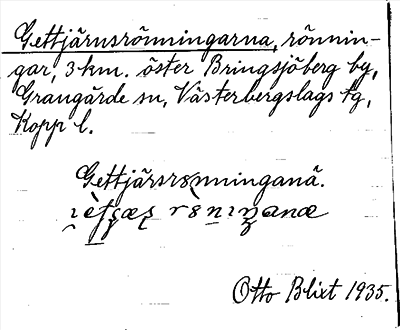 Gettjärnsrönningarna, rönnin-
gar, 3 km. öster Bringsjöberg by,
Grangärde sn, Västerbergslags tg,
Kopp l.
Gettjärsrönninganä.
Otto Blixt 1935.